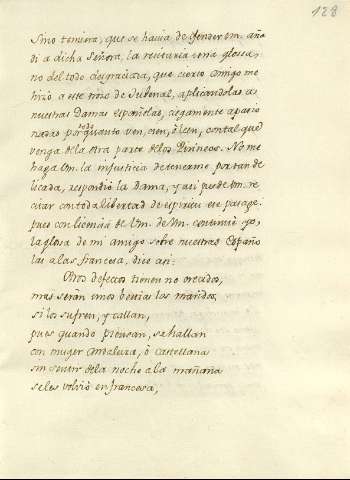 128
Si no temiera, que se havia de ofender Vm. aña
di a dicha Señora, la recitaria una glossa,
no del todo desgraciada, que cierto Amigo me
hizo a este trozo de Jubenal, aplicandolas a
nuestras Damas españolas, ciegamente apasio
nadas por todo quanto ven, oien, ò leen, con tal que
venga de la otra parte de los Pirineos. No me
haga Vm. la injusticia de tenerme por tan de
licada, respondiò la Dama, y asi puede Vm. re
citar con toda libertad de espiritu ese pasage.
pues con licencia de Vm. de Vm. continuè yo,
la glosa de mi amigo sobre nuestras Españo
las a la francesa, dice asi:
Otros defectos tienen no crecidos,
mas seràn unos bestias los maridos,
si los sufren, y callan,
pues quando piensan, se hallan
con muger Andaluza, ò Castellana
sin sentir de la noche a la mañana
se les volviò en francesa,